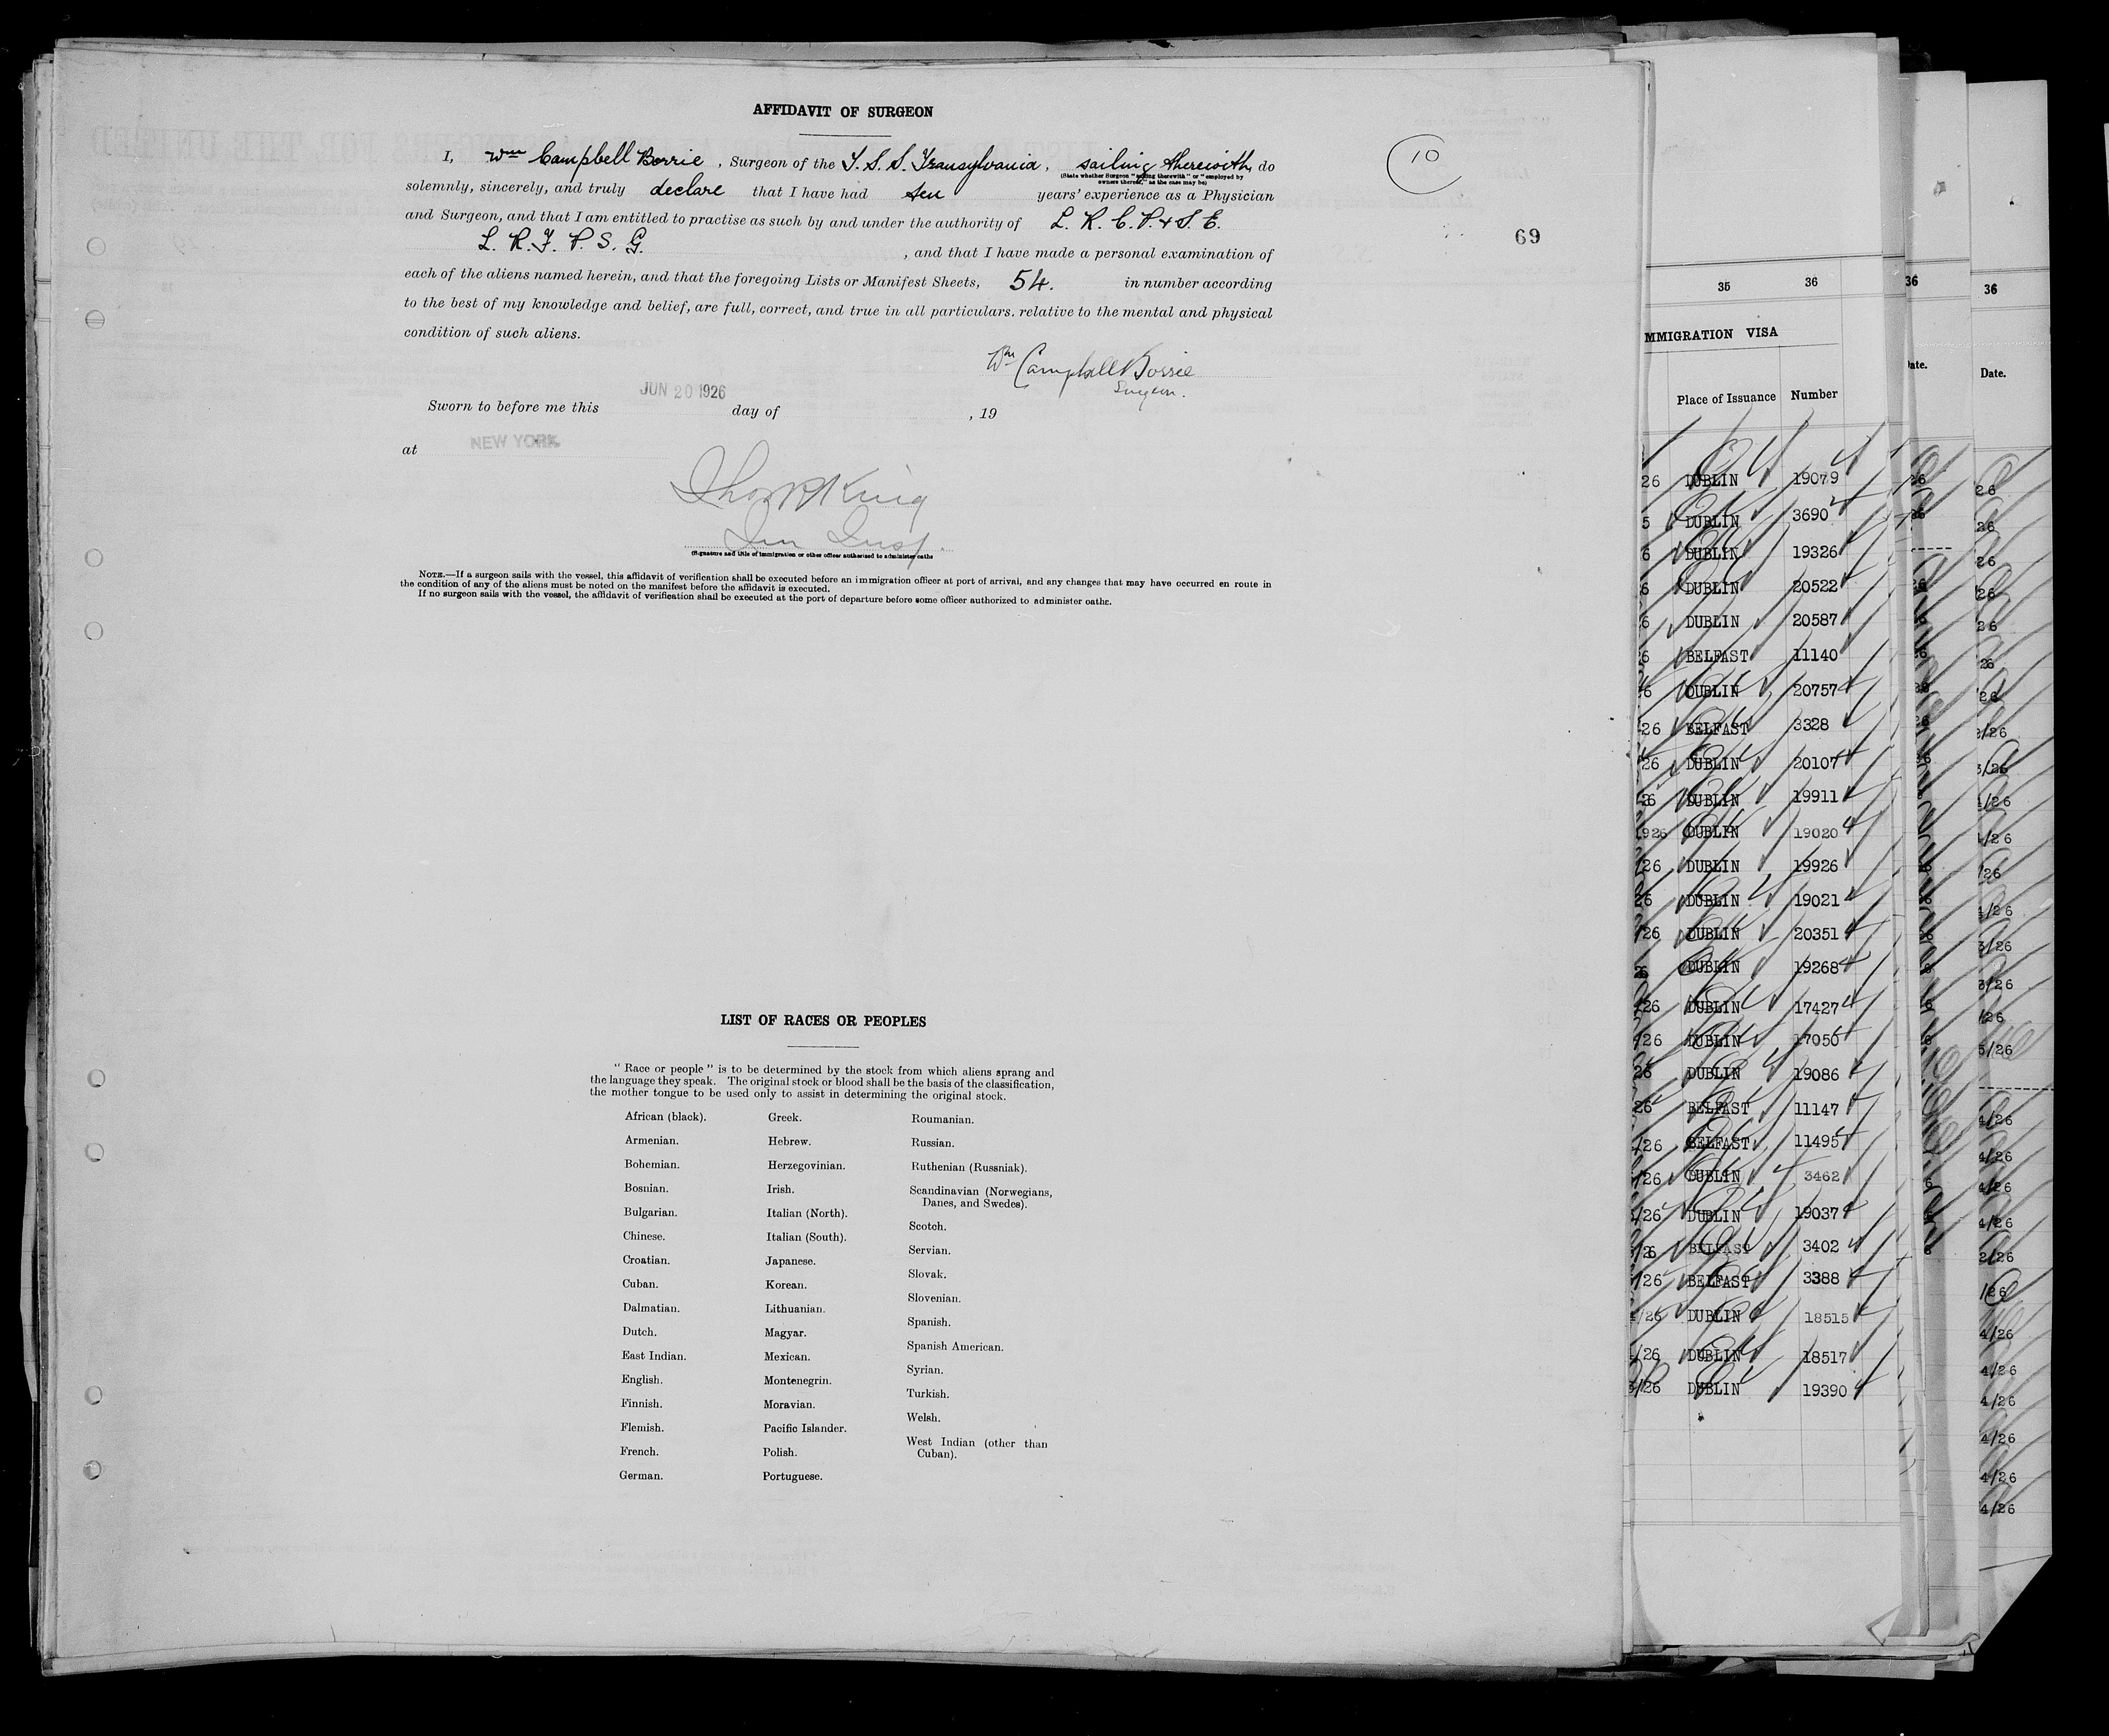 AFFIDAVIT OF SURGEON
I, Wm Campbell Borrie, Surgeon of the T.S.S. Transylvania, sailing therewith, do
(State whether Surgeon "sailing therewith" or "employed by
owners thereof," as the case may be)
solemnly, sincerely, and truly declare that I have had ten years' experience as a Physician
and Surgeon, and that I am entitled to practise as such by and under the authority of L. R. C. P. & S. E.
L. R. F. P. S. G. , and that I have made a personal examination of
each of the aliens named herein, and that the foregoing Lists or Manifest Sheets, 54. in number according
to the best of my knowledge and belief, are full, correct, and true in all particulars. relative to the mental and physical
condition of such aliens.
Wm Campbell Borrie
Surgeon.
JUN 20 1926
Sworn to before me this day of , 19
at NEW YORK
King
Imm Insp.
(Signature and title of immigration or other officer authorised to administer oaths
NOTE.—If a surgeon sails with the vessel, this affidavit of verification shall be executed before an immigration officer at port of arrival, and any changes that may have occurred en route in
the condition of any of the aliens must be noted on the manifest before the affidavit is executed.
If no surgeon sails with the vessel, the affidavit of verification shall be executed at the port of departure before some officer authorized to administer oaths.
10
69
LIST OF RACES OR PEOPLES
"Race or people" is to be determined by the stock from which aliens sprang and
the language they speak. The original stock or blood shall be the basis of the classification,
the mother tongue to be used only to assist in determining the original stock.
African (black).
Armenian.
Bohemian.
Bosnian.
Bulgarian.
Chinese.
Croatian.
Cuban.
Dalmatian.
Dutch.
East Indian.
English.
Finnish.
Flemish.
French.
German.
Greek.
Hebrew.
Herzegovinian.
Irish.
Italian (North).
Italian (South).
Japanese.
Korean.
Lithuanian.
Magyar.
Mexican.
Montenegrin.
Moravian.
Pacific Islander.
Polish.
Portuguese.
Roumanian.
Russian.
Ruthenian (Russniak).
Scandinavian (Norwegians,
Danes, and Swedes).
Scotch.
Servian.
Slovak.
Slovenian.
Spanish.
Spanish American.
Syrian.
Turkish.
Welsh.
West Indian (other than
Cuban).
35 36
MMIGRATION VISA
Place of Issuance Number
26 DUBLIN 19079
5 DUBLIN 3690
6 DUBLIN 19326
6 DUBLIN 20522
6 DUBLIN 20587
26 BELFAST 11140
26 DUBLIN 20757
26 BELFAST 3328
26 DUBLIN 20107
26 DUBLIN 19911
926 DUBLIN 19020
/26 DUBLIN 19926
26 DUBLIN 19021
/26 DUBLIN 20351
26 DUBLIN 19268
/26 DUBLIN 17427
/26 DUBLIN 17050
26 DUBLIN 19086
26 BELFAST 11147
/26 BELFAST 11495
/26 DUBLIN 3462
/26 DUBLIN 19037
/26 BELFAST 3402
/26 BELFAST 3388
/26 DUBLIN 18515
/26 DUBLIN 18517
3/26 DUBLIN 19390
36
Date.
36
Date.
26
26
26
26
26
26
26
2/26
3/26
1/26
4/26
/26
4/26
3/26
3/26
/26
5/26
4/26
4/26
4/26
4/26
2/26
/26
4/26
4/26
4/26
4/26
4/26
4/26